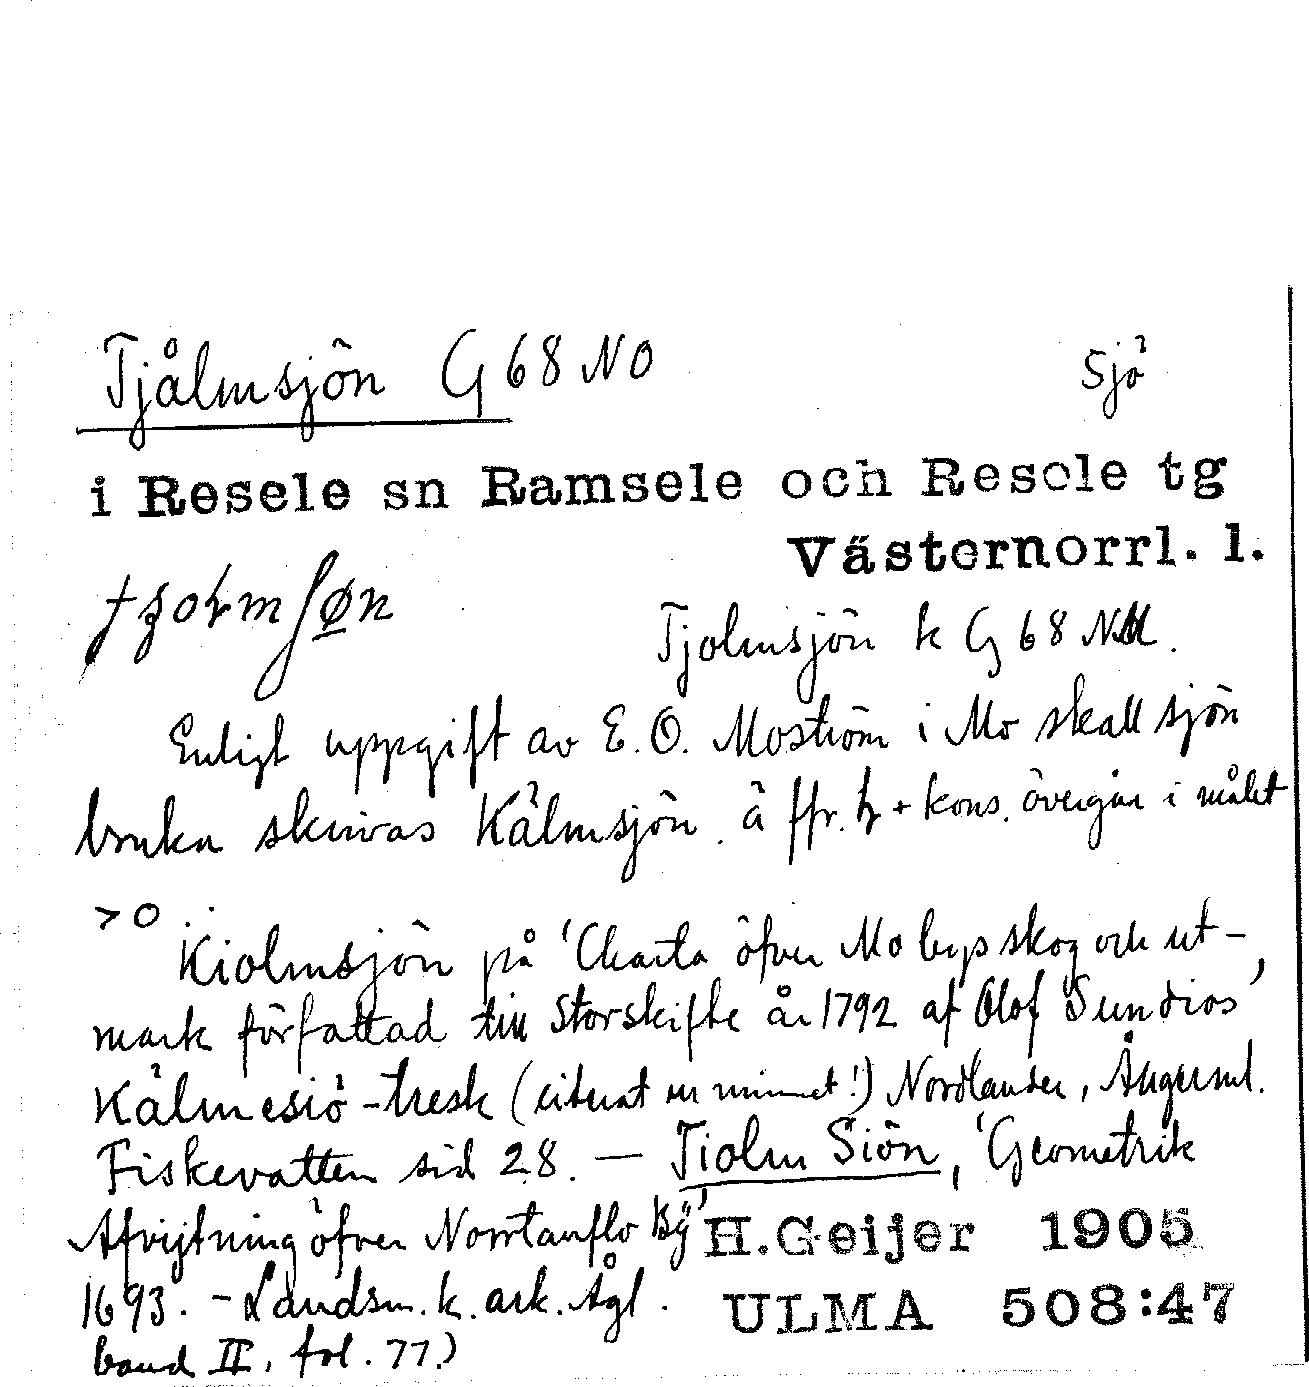 Tjålmsjön G 68 NO Sjö
i Resele sn Ramsele och Resele tg
Västernorrl. l.
Tjolmsjön k G 68 NV.
Enligt uppgift av E. O. Moström i Mo skall sjön
bruka skrivas Kälmsjön. ä ffr. + kons. övergår i målet
> o.
Kiolmsjön på 'Charta öfver Mo bys skog och ut-
mark författad till Storskifte år 1792 af Olof Sundius'
Kälmesiö-tresk (citerat ur minnet!) Nordlander, Ångerml.
Fiskevatten sid 28. — Tiolm Siön, 'Geometrisk
Afvijtning öfver Norrtanflo By'
1693. - Landsm. k. ark. Ågl.
band II, fol. 77.)
H. Geijer 1905
ULMA 508:47